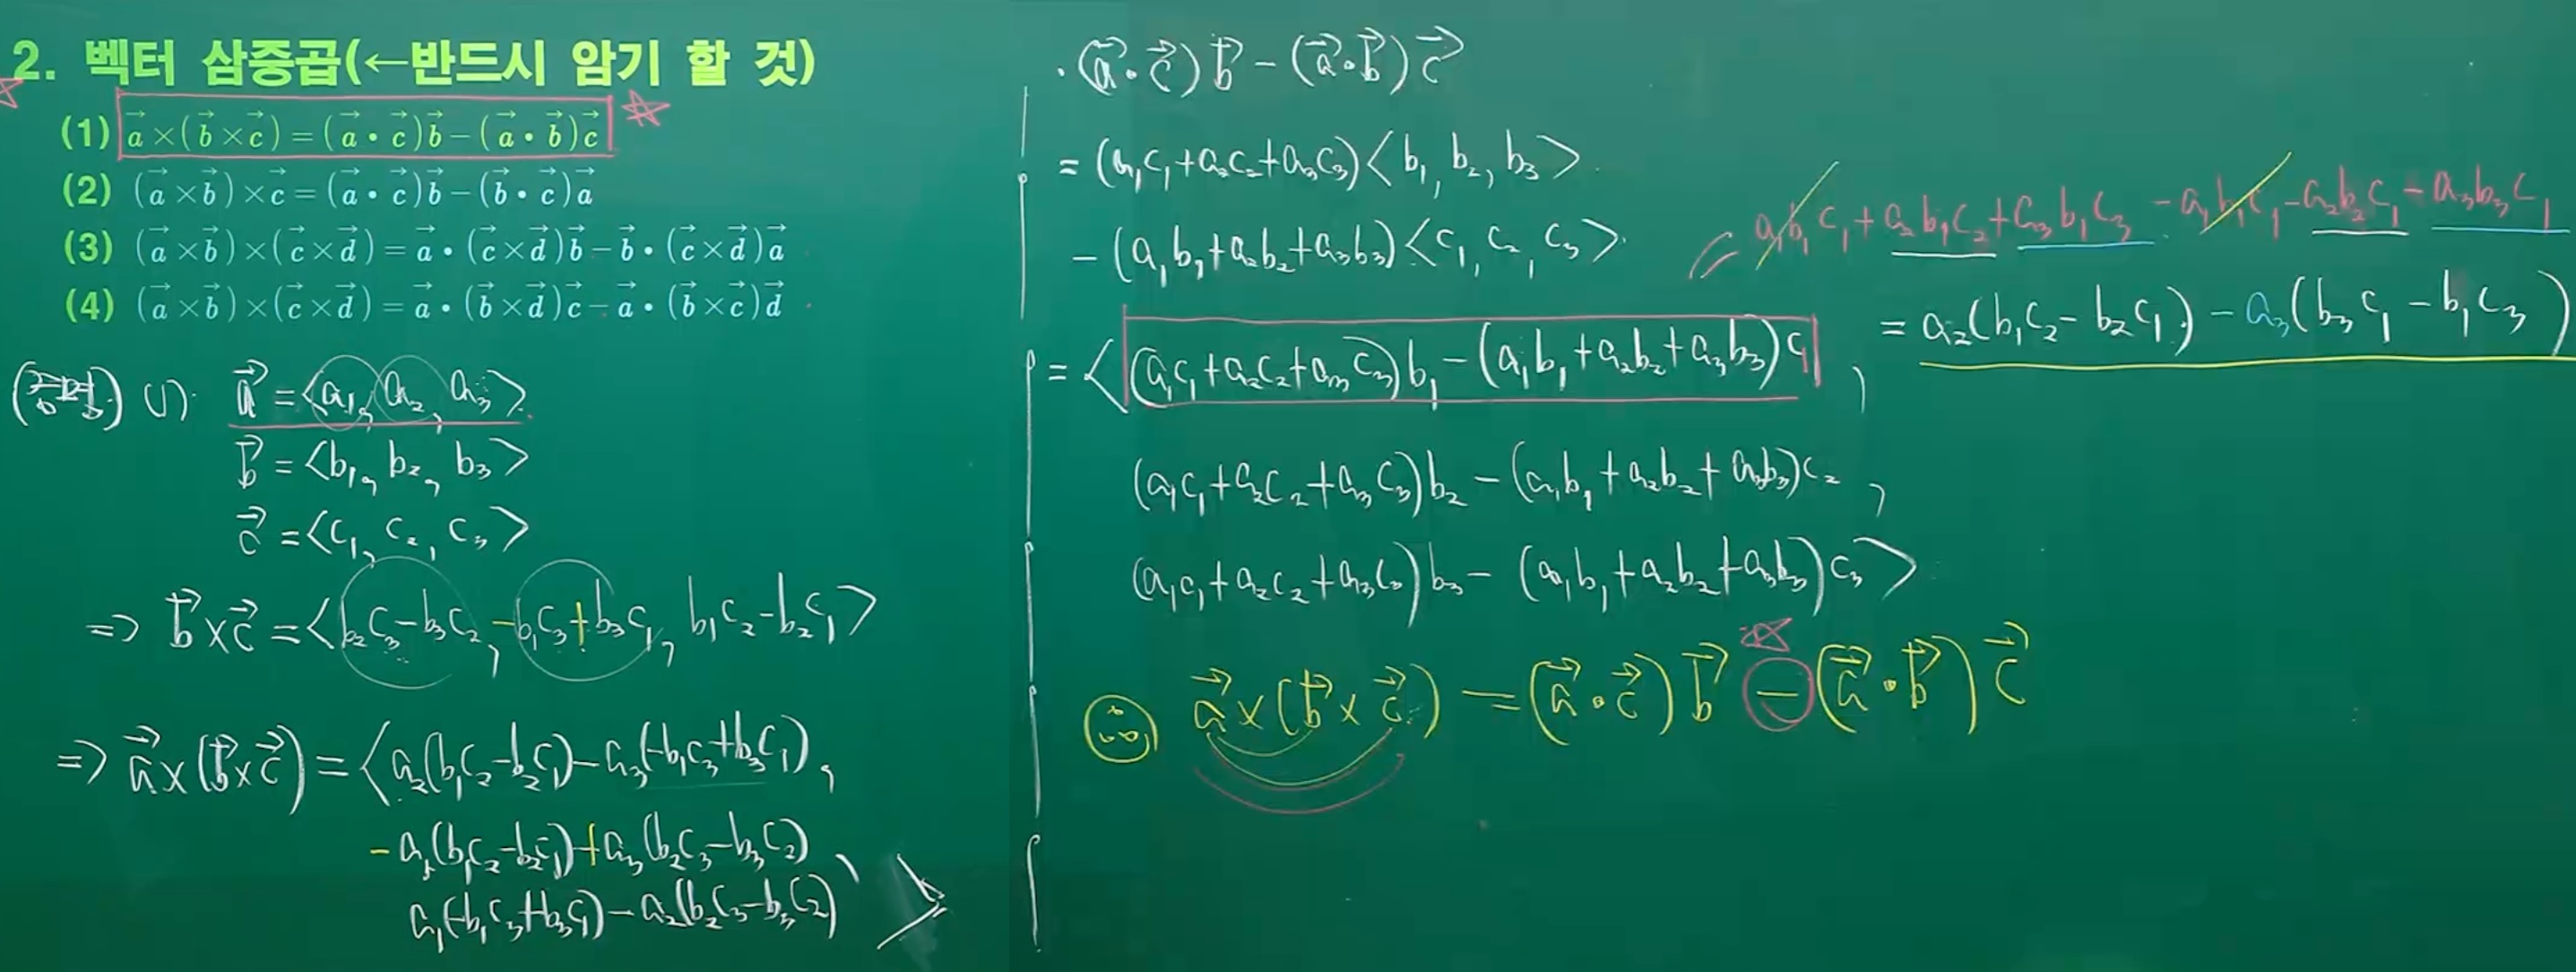 2. 벡터 삼중곱(←반드시 암기 할 것)
(1) a⃗×(b⃗×c⃗)=(a⃗•c⃗)b⃗−(a⃗•b⃗)c⃗
(2) (a⃗×b⃗)×c⃗=(a⃗•c⃗)b⃗−(b⃗•c⃗)a⃗
(3) (a⃗×b⃗)×(c⃗×d⃗)=a⃗•(c⃗×d⃗)b⃗−b⃗•(c⃗×d⃗)a⃗
(4) (a⃗×b⃗)×(c⃗×d⃗)=a⃗•(b⃗×d⃗)c⃗−a⃗•(b⃗×c⃗)d⃗
(1). a⃗=<a₁, a₂, a₃>
b⃗=<b₁, b₂, b₃>
c⃗=<c₁, c₂, c₃>
=> b⃗×c⃗=<b₂c₃−b₃c₂, −b₁c₃+b₃c₁, b₁c₂−b₂c₁>
=> a⃗×(b⃗×c⃗)=<a₂(b₁c₂−b₂c₁)−a₃(−b₁c₃+b₃c₁),
−a₁(b₁c₂−b₂c₁)+a₃(b₂c₃−b₃c₂),
a₁(−b₁c₃+b₃c₁)−a₂(b₂c₃−b₃c₂)>
·(a⃗•c⃗)b⃗−(a⃗•b⃗)c⃗
=(a₁c₁+a₂c₂+a₃c₃)<b₁, b₂, b₃>
−(a₁b₁+a₂b₂+a₃b₃)<c₁, c₂, c₃>
=<(a₁c₁+a₂c₂+a₃c₃)b₁−(a₁b₁+a₂b₂+a₃b₃)c₁,
(a₁c₁+a₂c₂+a₃c₃)b₂−(a₁b₁+a₂b₂+a₃b₃)c₂,
(a₁c₁+a₂c₂+a₃c₃)b₃−(a₁b₁+a₂b₂+a₃b₃)c₃>
∴ a⃗×(b⃗×c⃗)=(a⃗•c⃗)b⃗−(a⃗•b⃗)c⃗
= a₁b₁c₁+a₂b₁c₂+a₃b₁c₃−a₁b₁c₁−a₂b₂c₁−a₃b₃c₁
=a₂(b₁c₂−b₂c₁)−a₃(b₃c₁−b₁c₃)